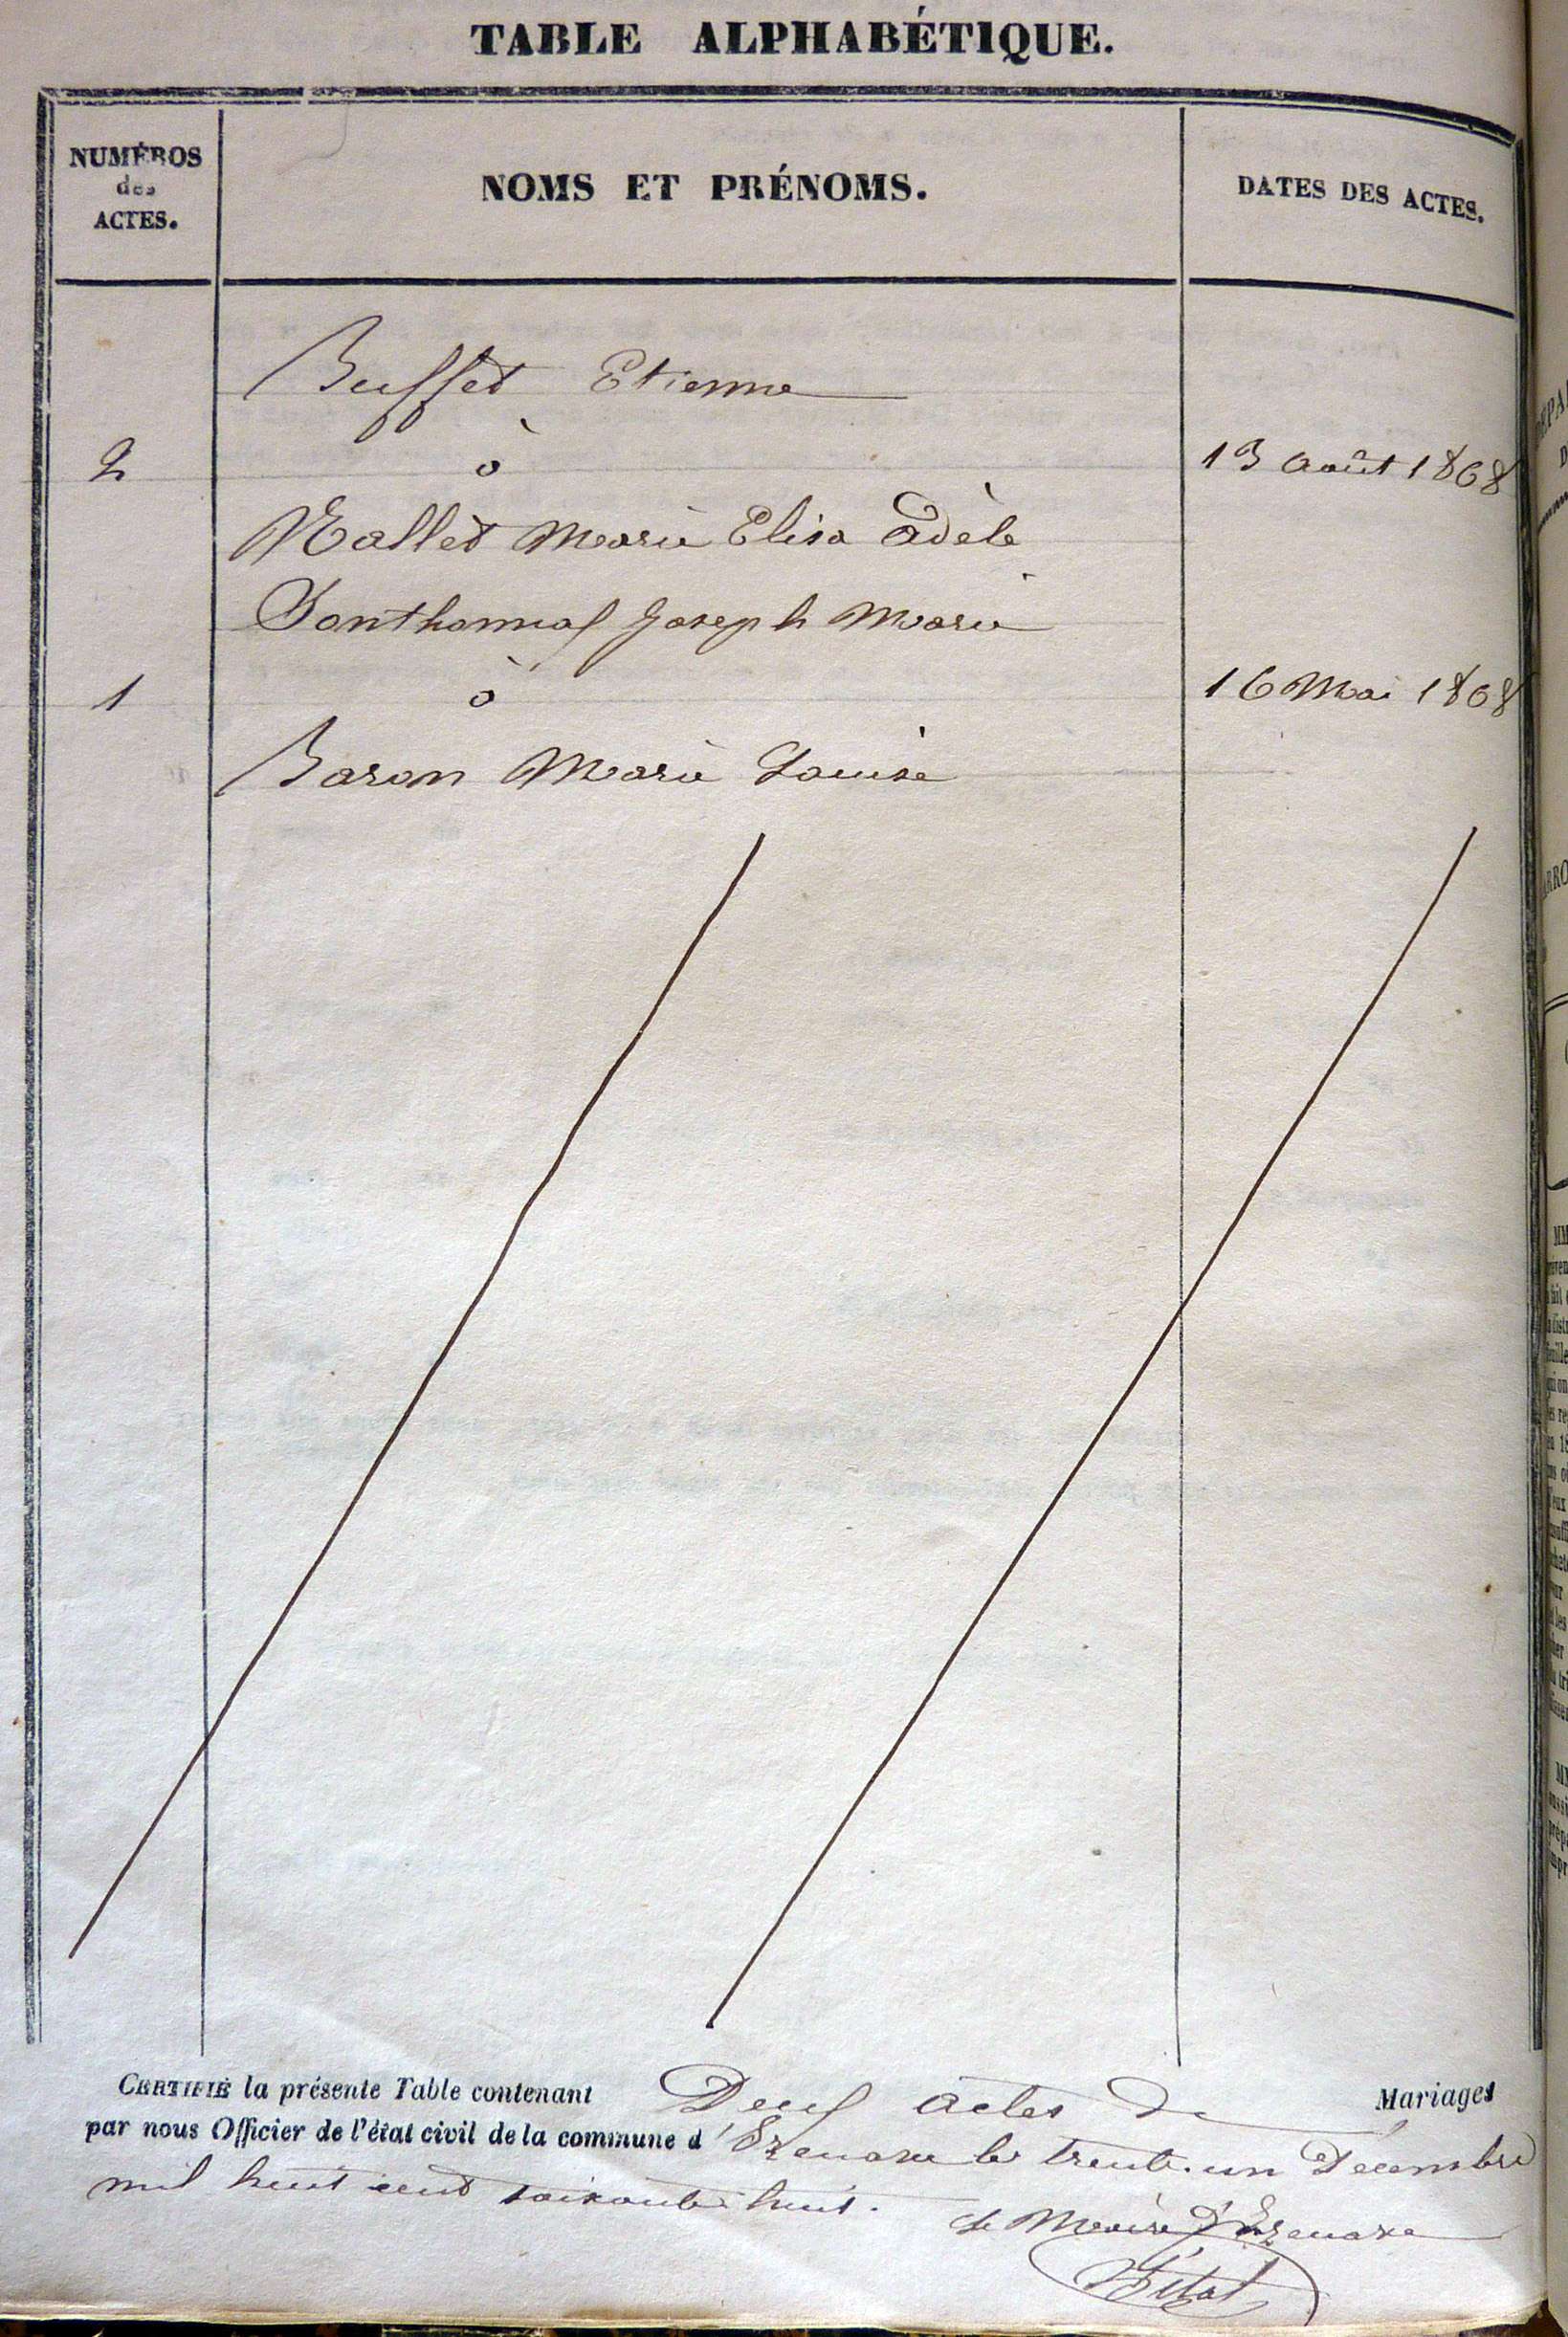 TABLE ALPHABÉTIQUE.
NUMÉROS
des
ACTES.
NOMS ET PRÉNOMS.
DATES DES ACTES.
Buffet Etienne
2 à 13 Août 1868
Mallet Marie Elisa Adèle
Jonthomas Joseph Marie
1 à 16 Mai 1868
Baron Marie Louise
CERTIFIÉ la présente Table contenant Deux actes de Mariages
par nous Officier de l'état civil de la commune d' le trente-un Décembre
mil huit cent soixante huit.
Le Maire